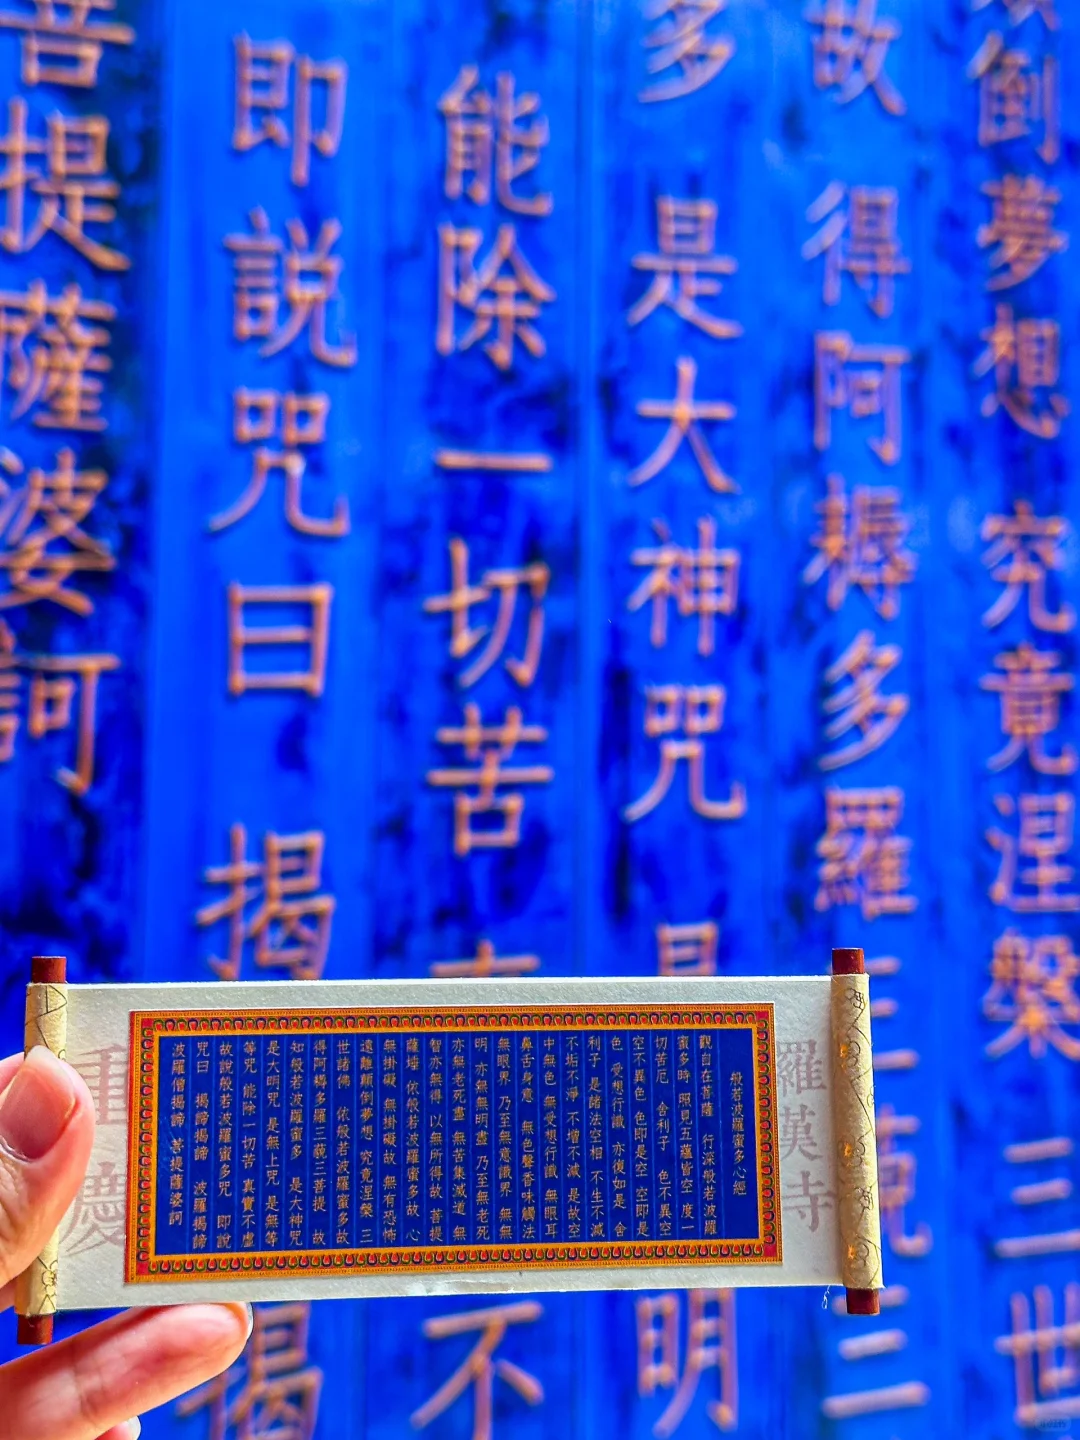 倒夢想 究竟涅槃 三世
故 得阿耨多羅三藐三
多 是大神咒 是 明
能除一切苦 不
即説咒曰 揭 揭
菩提薩婆訶
羅漢寺
般若波羅蜜多心經
觀自在菩薩 行深般若波羅
蜜多時 照見五蘊皆空 度一
切苦厄 舍利子 色不異空
空不異色 色即是空 空即是
色 受想行識 亦復如是 舍
利子 是諸法空相 不生不滅
不垢不淨 不增不減 是故空
中無色 無受想行識 無眼耳
鼻舌身意 無色聲香味觸法
無眼界 乃至無意識界 無無
明 亦無無明盡 乃至無老死
亦無老死盡 無苦集滅道 無
智亦無得 以無所得故 菩提
薩埵 依般若波羅蜜多故 心
無掛礙 無掛礙故 無有恐怖
遠離顛倒夢想 究竟涅槃 三
世諸佛 依般若波羅蜜多故
得阿耨多羅三藐三菩提 故
知般若波羅蜜多 是大神咒
是大明咒 是無上咒 是無等
等咒 能除一切苦 真實不虛
故說般若波羅蜜多咒 即說
咒曰 揭諦揭諦 波羅揭諦
波羅僧揭諦 菩提薩婆訶
重慶